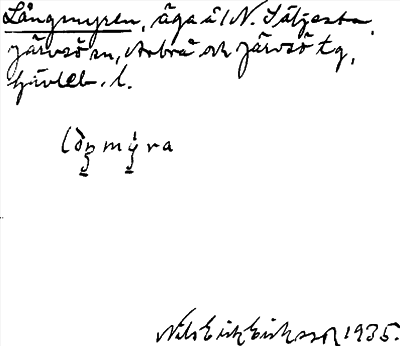 Långmyren, äga å 1 N. Sätjesta,
Järvsö sn, Arbrå och Järvsö tg,
Gävleb. l.
lòŋmỳra
Nils Erik Eriksson 1935.